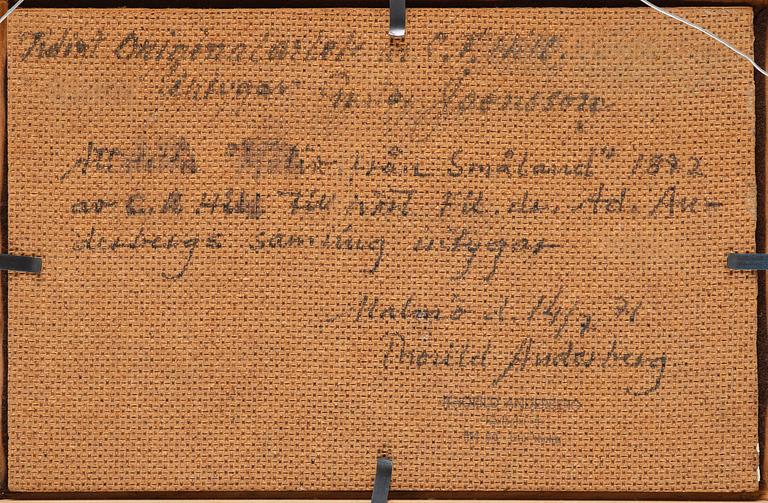 Originalarbete av C. F. Hill.
intygar Jönsson
Att detta "Motiv från Småland" 1892
av C. F. Hill tillhört Fil. dr. Ad. An-
derbergs samling intygar
Malmö d. 14/7 71
Thorild Anderberg
THORILD ANDERBERG